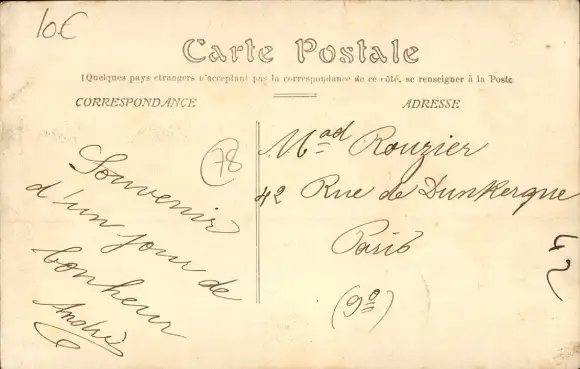 10€
Carte Postale
(Quelques pays étrangers n'acceptant pas la correspondance de ce côté, se renseigner à la Poste
CORRESPONDANCE
ADRESSE
78
Souvenir
d'un jour de
bonheur
André
Mad Rouzier
42 Rue de Dunkerque
Paris
(9º)
42